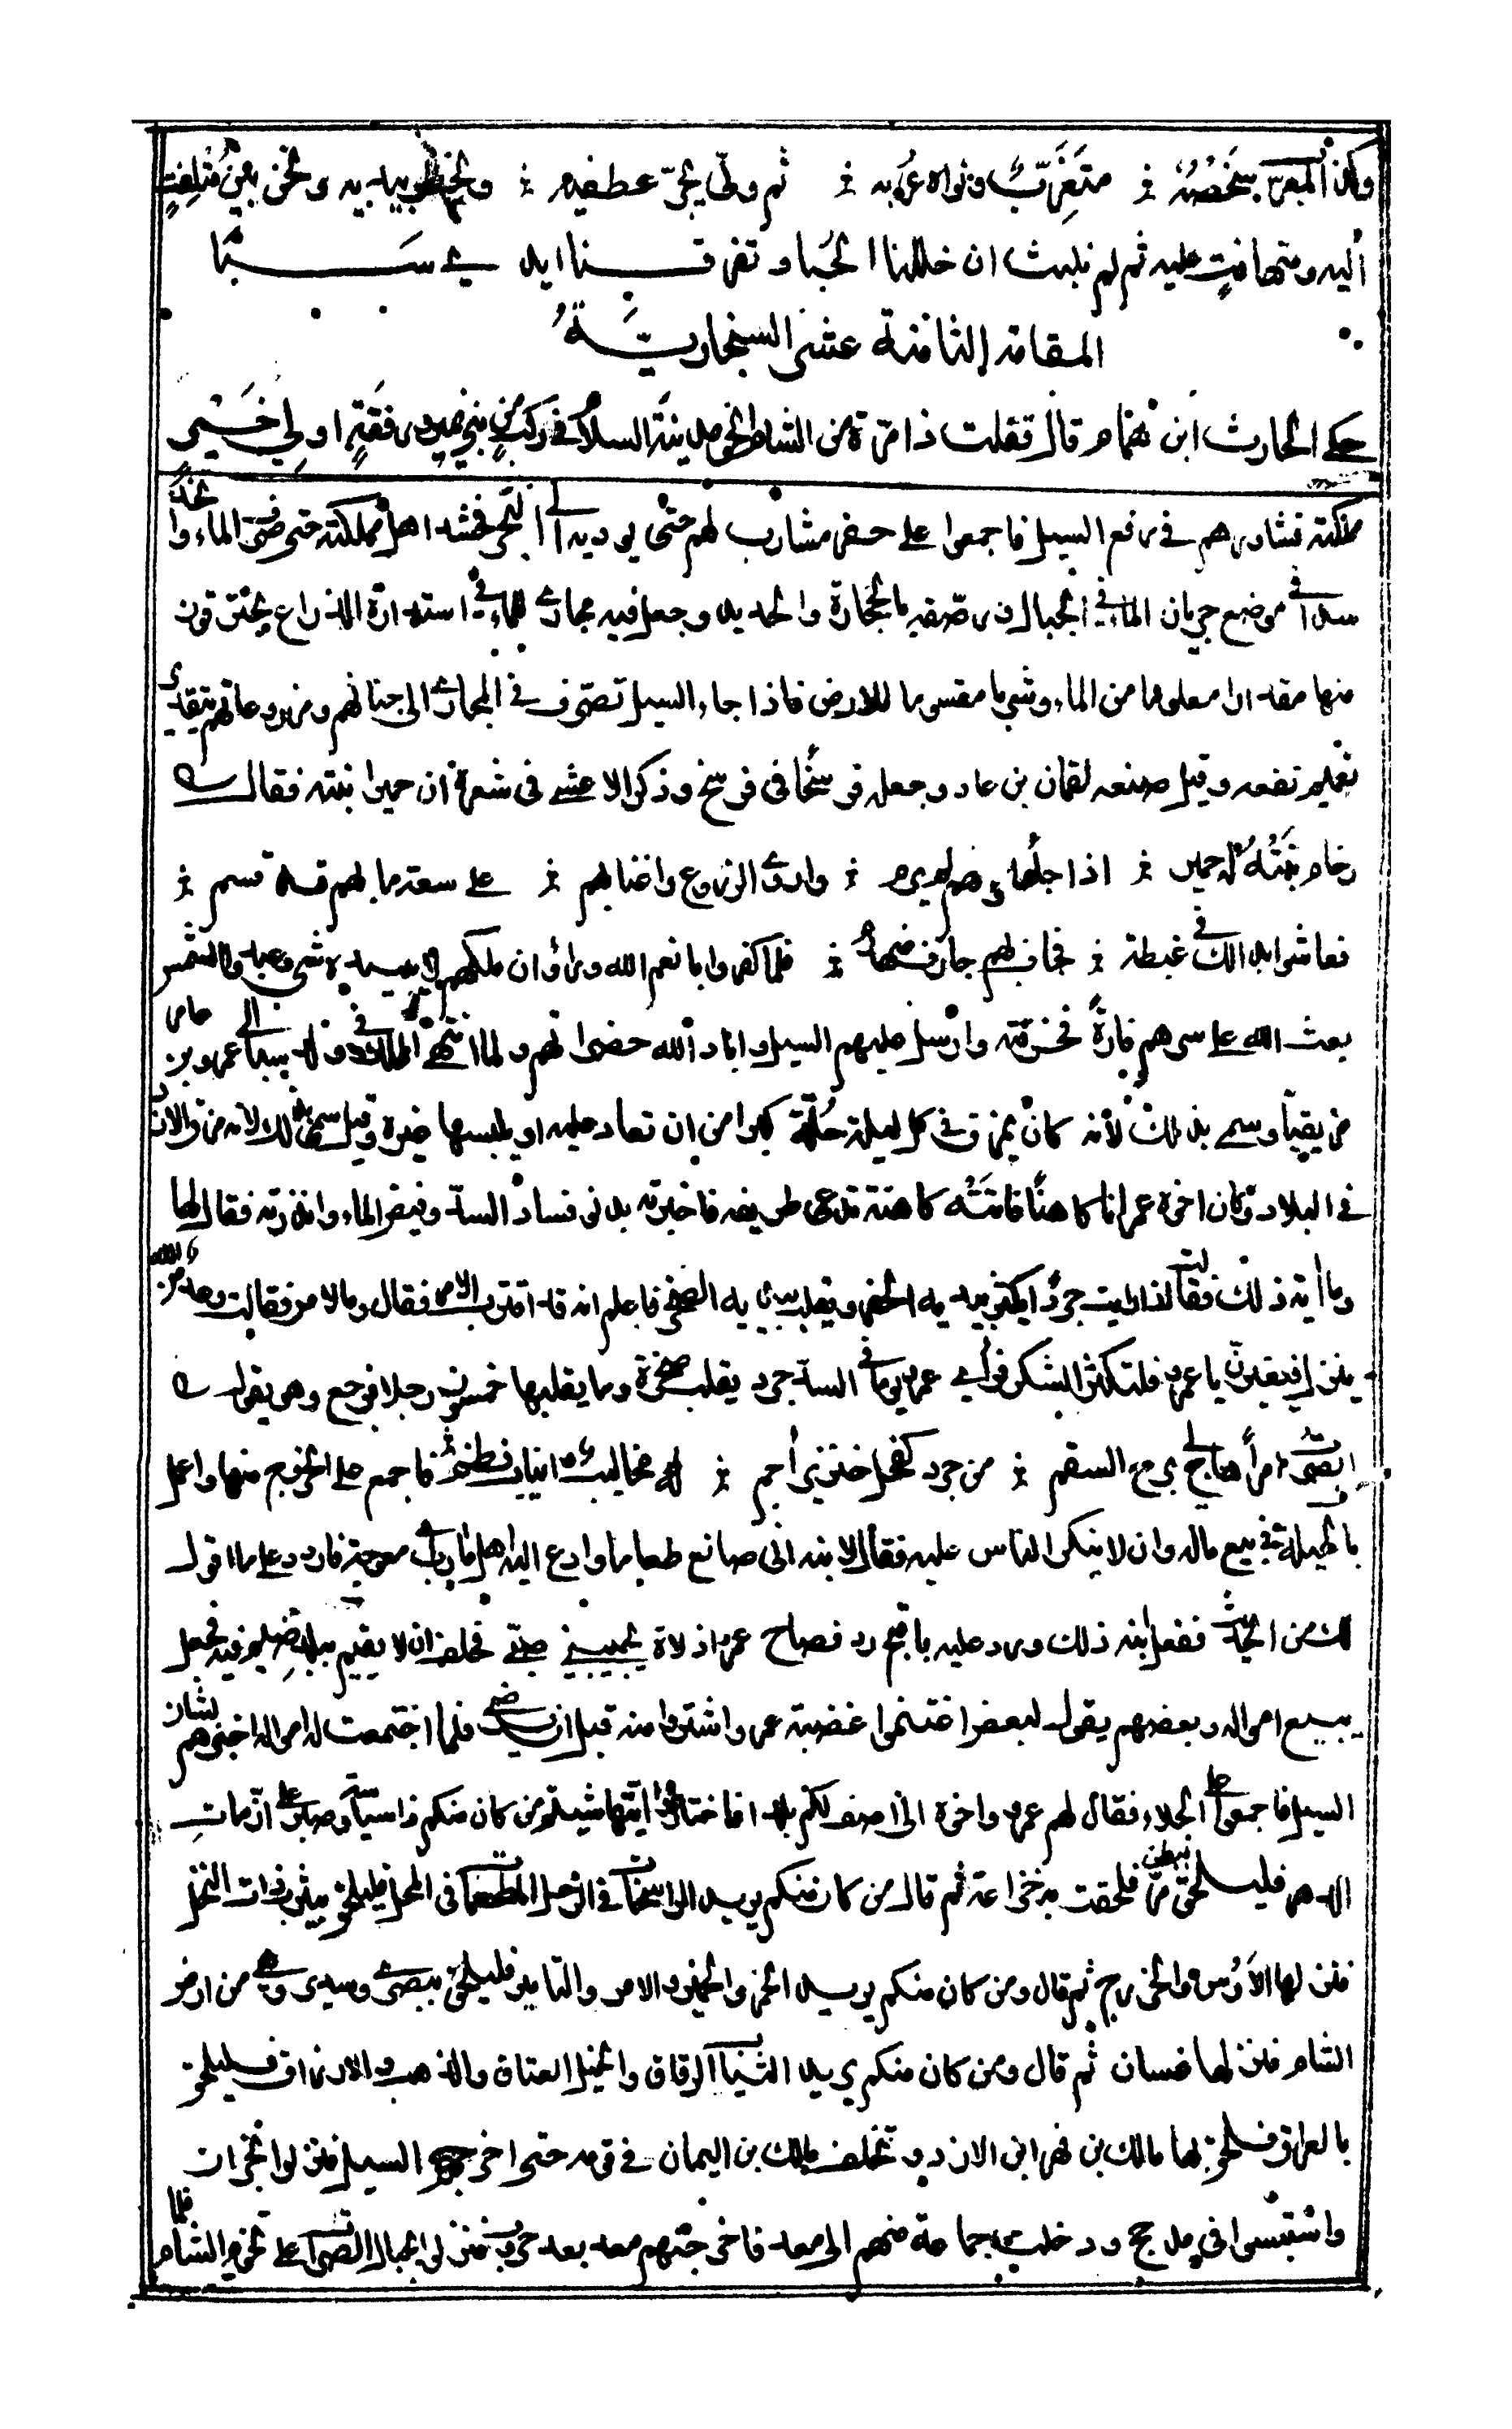 وكذا المغرب شخصه ∴ متغرب ونواه غربه ∴ ثم ولى يجر عطفيه ∴ ويخطر بيديه ونحن بين متلفت
اليه ومتهافت عليه ثم لم نلبث ان حللنا الحبا وتفرقنا ايدي سبا
المقامة الثامنة عشر السنجارية
حكى الحارث ابن همام قال قفلت ذا مرة من الشام انحو مدينة السلام في ركب من بني نمير ورفقة اولي خير
مملكته فشاورهم في دفع السيل فاجمعوا على حفر مشارب لهم حتى يوديه الى البحر فحشد اهل مملكته حتى صرف الماء واتخذ
سدا في موضع جريان الماء في الجبال ورصفه بالحجارة والحديد وجعل فيه مجاري للماء في استدارة الذراع يخترقون
منها مقدارا معلوما من الماء وشربا مقسوما للارض فاذا جاء السيل تصرف في المجاري الى جناتهم ومزروعاتهم بتقدير
نعيم نفعه وقيل صنعه لقمان بن عاد وجعله فرسخا في فرسخ وذكر الاعشى في شعره ان حمير بنته فقال
رخام بنته له حمير ∴ اذا جاء ∴ واروى الزروع واعنابهم ∴ على سعة ما بهم قد قسم ∴
فعاشوا بذلك في غبطة ∴ فحاف بهم جارف ∴ فلما كفروا بانعم الله ورأوا ان ملكهم لا يبيده شئ وعبدوا الشمس
بعث الله على سدهم فارة فخرقته وارسل عليهم السيل واباد الله خضراءهم ولما انتهى الملك في ولد سبا الى عمرو بن عامر
مزيقيا وسمي بذلك لانه كان يمزق في كل ليلة حلة كبرا من ان تعاد عليه او يلبسها غيره وقيل سمي بذلك لانه مزق الازد
في البلاد وكان اخوه عمران كاهنا فاتته كاهنة تدعى طريفة فاخبرته بدنو فساد السد وفيض الماء وانذرته فقال لها
وما آية ذلك فقالت اذا رايت جرذا يكثر بيديه الحفر ويقلب بيديه الصخر فاعلم انه قد اقترب الامر فقال وما الامر فقالت وعد من الله
ينزل يا عمرو فلتكثر الشكر فرأى عمرو يوما في السد جرذ يقلب صخرة وما يقلبها خمسون رجلا فرجع وهو يقول
ابصرت امرا هاج لي برح السقم ∴ من جرذ كفحل خنزير أجم ∴ له مخاليب وانياب قطم فاجمع على الخروج منها واعمل
بالحيلة في بيع ماله وان لا ينكر الناس عليه فقال لابنه اني صانع طعاما وادع اليه اهل مارب فاردد علي ما اقول
لك من الحديث ففعل ابنه ذلك ورد عليه باقبح رد فصاح عمرو اذلاه يجيبني صبي فحلف ان لا يقيم ببلد ضيم فيه فجعل
يبيع امواله وبعضهم يقول لبعض اغتنموا غضبة عمرو واشتروا منه قبل ان يرضى فلما اجتمعت له امواله اخبرهم بشان
السيل فاجمعوا على الجلاء فقال لهم عمرو واخوه اني اصف لكم بلدا فاختاروا ايتها شيتم من كان منكم وصبر على ازمات
الدهر فليلحق ببطن مر فلحقت به خزاعة ثم قال من كان منكم يريد الراسخات في الوحل المطعمات في المحل فليلحق بيثرب ذات النخل
فنزلها الاوس والخزرج ثم قال ومن كان منكم يريد الخمر والخمير والامر والتامير فليلحق ببصرى وسدير وهي من ارض
الشام فنزلها غسان ثم قال ومن كان منكم يريد الثياب الرقاق والخيل العتاق والذهب والارزاق فليلحق
بالعراق فلحق بها مالك بن فهر ابن الازد وتخلف مالك بن اليمان في قومه حتى اخرجهم السيل فنزلوا نجران
وانتسبوا في مذحج ودخلت جماعة منهم الى معد فاخرجتهم معد بعد حروب فنزل الجبال الصم على تخوم الشام فلما